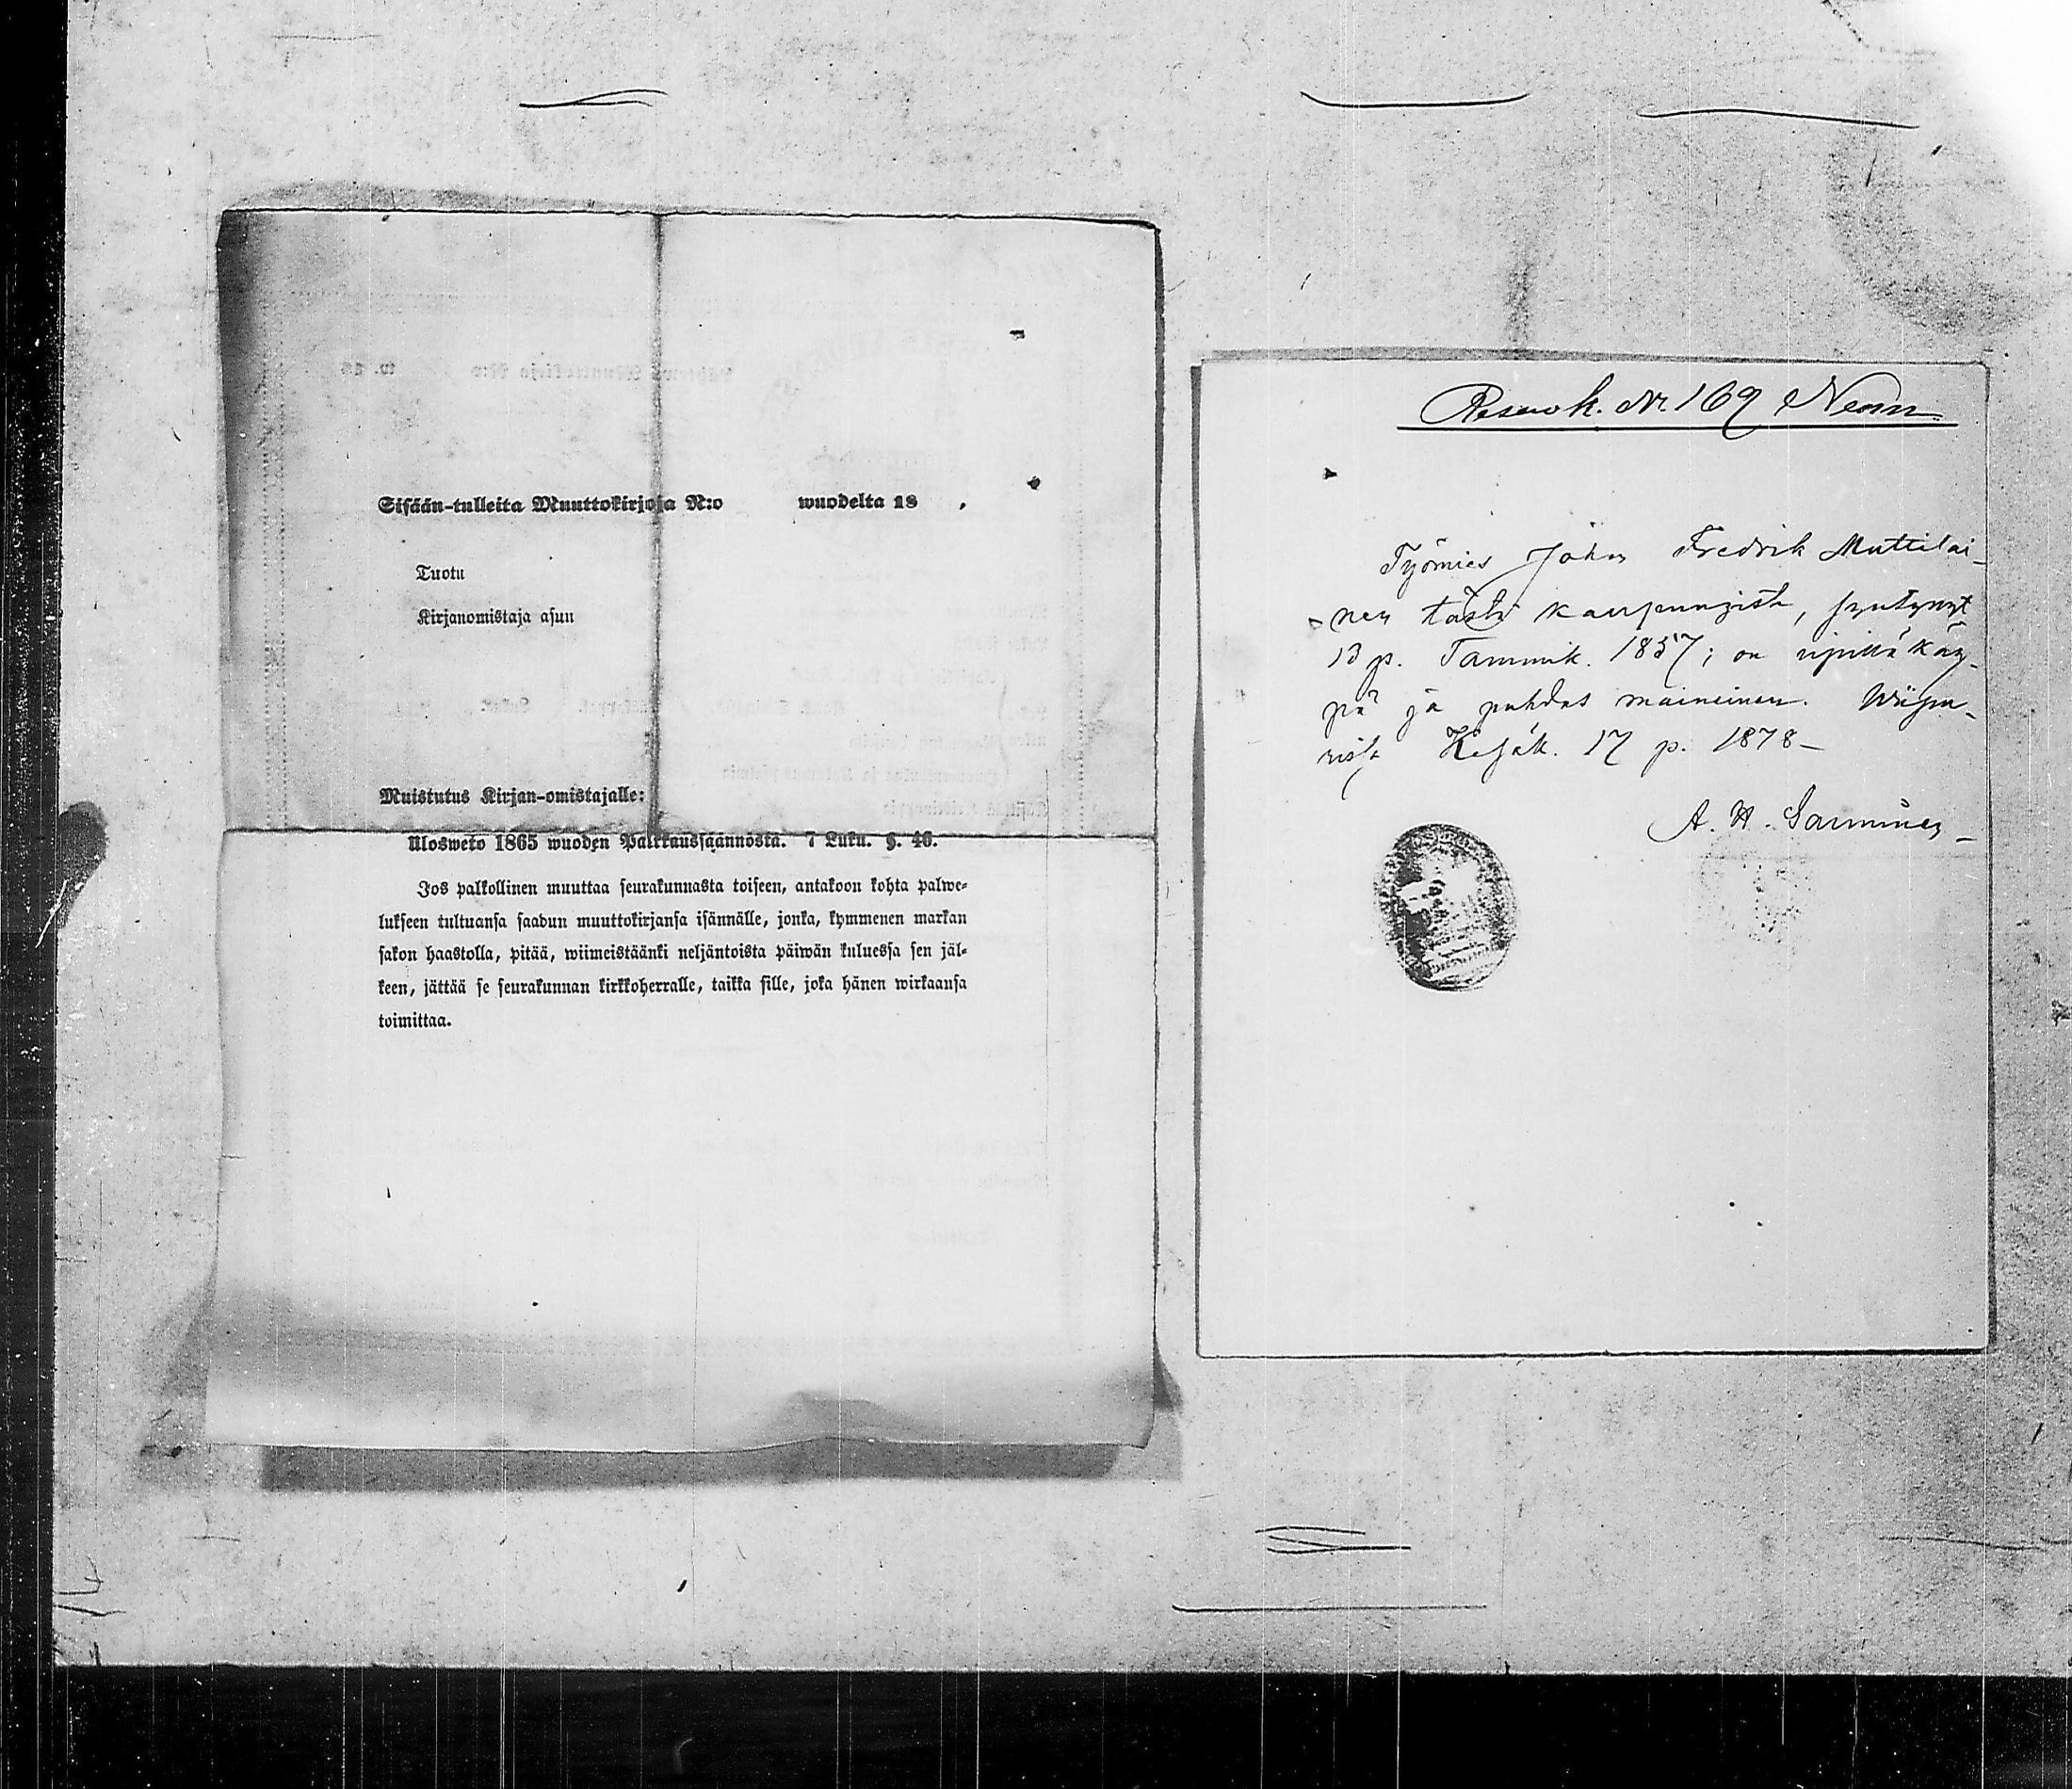 Sisään-tulleita Muuttokirjoja N:o wuodelta 18 .
Tuotu
Kirjanomistaja asuu
Muistutus Kirjan-omistajalle:
Ulosweto 1865 wuoden Palkkaussäännöstä. 7 Luku. §. 46.
Jos palkollinen muuttaa seurakunnasta toiseen, antakoon kohta palwe-
lukseen tultuansa saadun muuttokirjansa isännälle, jonka, kymmenen markan
sakon haastolla, pitää, wiimeistäänki neljäntoista päiwän kuluessa sen jäl-
keen, jättää se seurakunnan kirkkoherralle, taikka sille, joka hänen wirkaansa
toimittaa.
N 169
Työmies Johan Fredrik Muttilai-
-nen tästä kaupungista, syntynyt
13 p. Tammik. 1857; on ripillä käy-
pä ja puhdas maineinen. Wiipu-
rissa Kesäk. 17 p. 1878 -